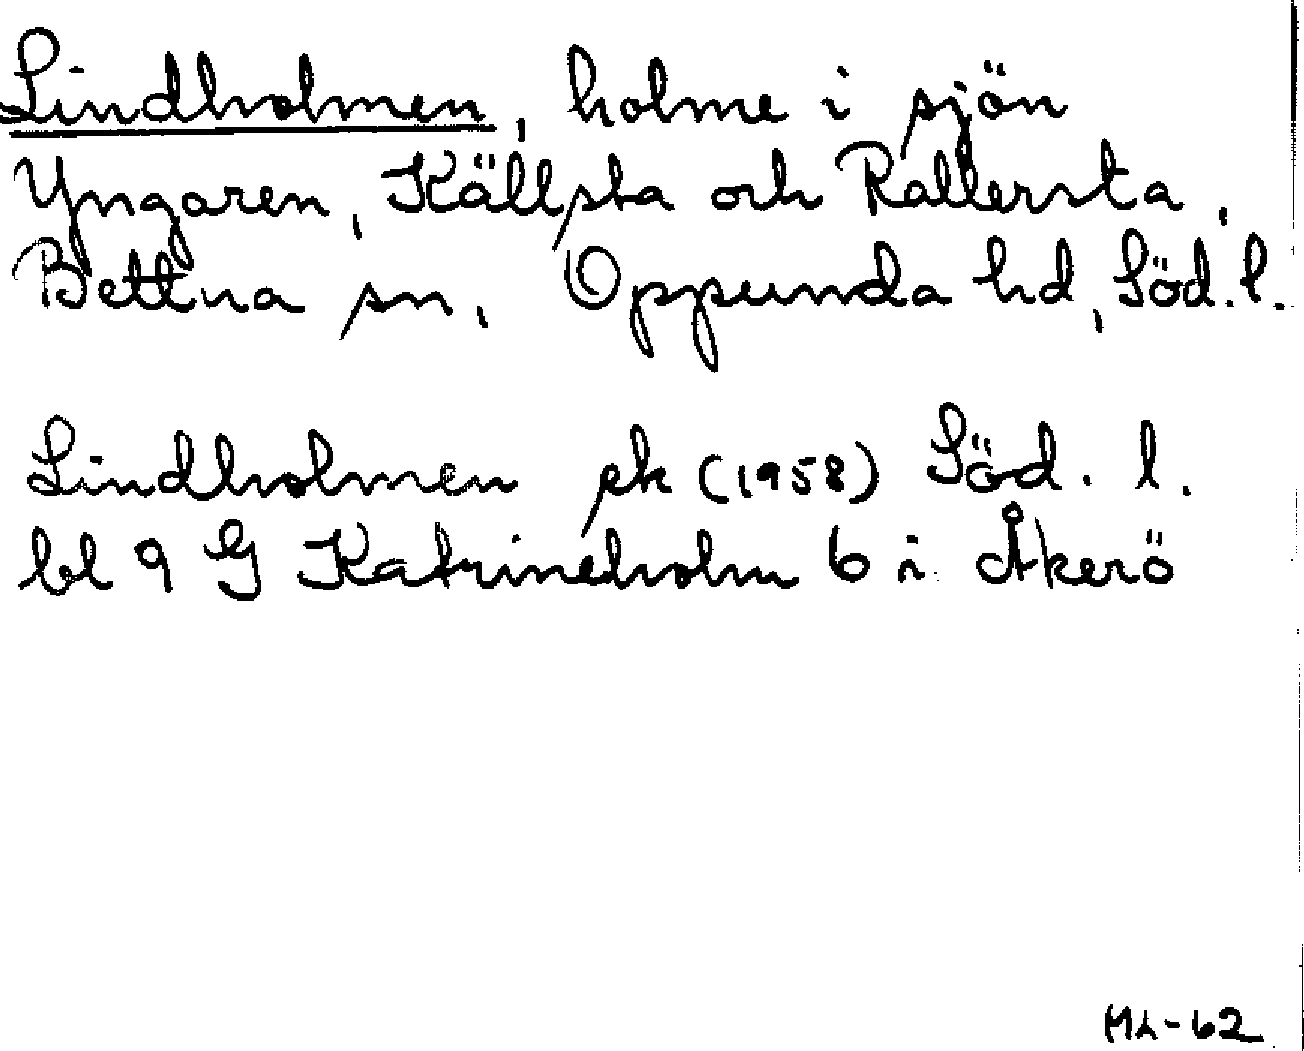 Lindholmen, holme i sjön
Yngaren, Källpsta och Rallersta,
Bettna sn, Oppunda hd, Söd. l.
Lindholmen ek (1958) Söd. l.
bl 9 G Katrineholm 6 i Åkerö
MA-62